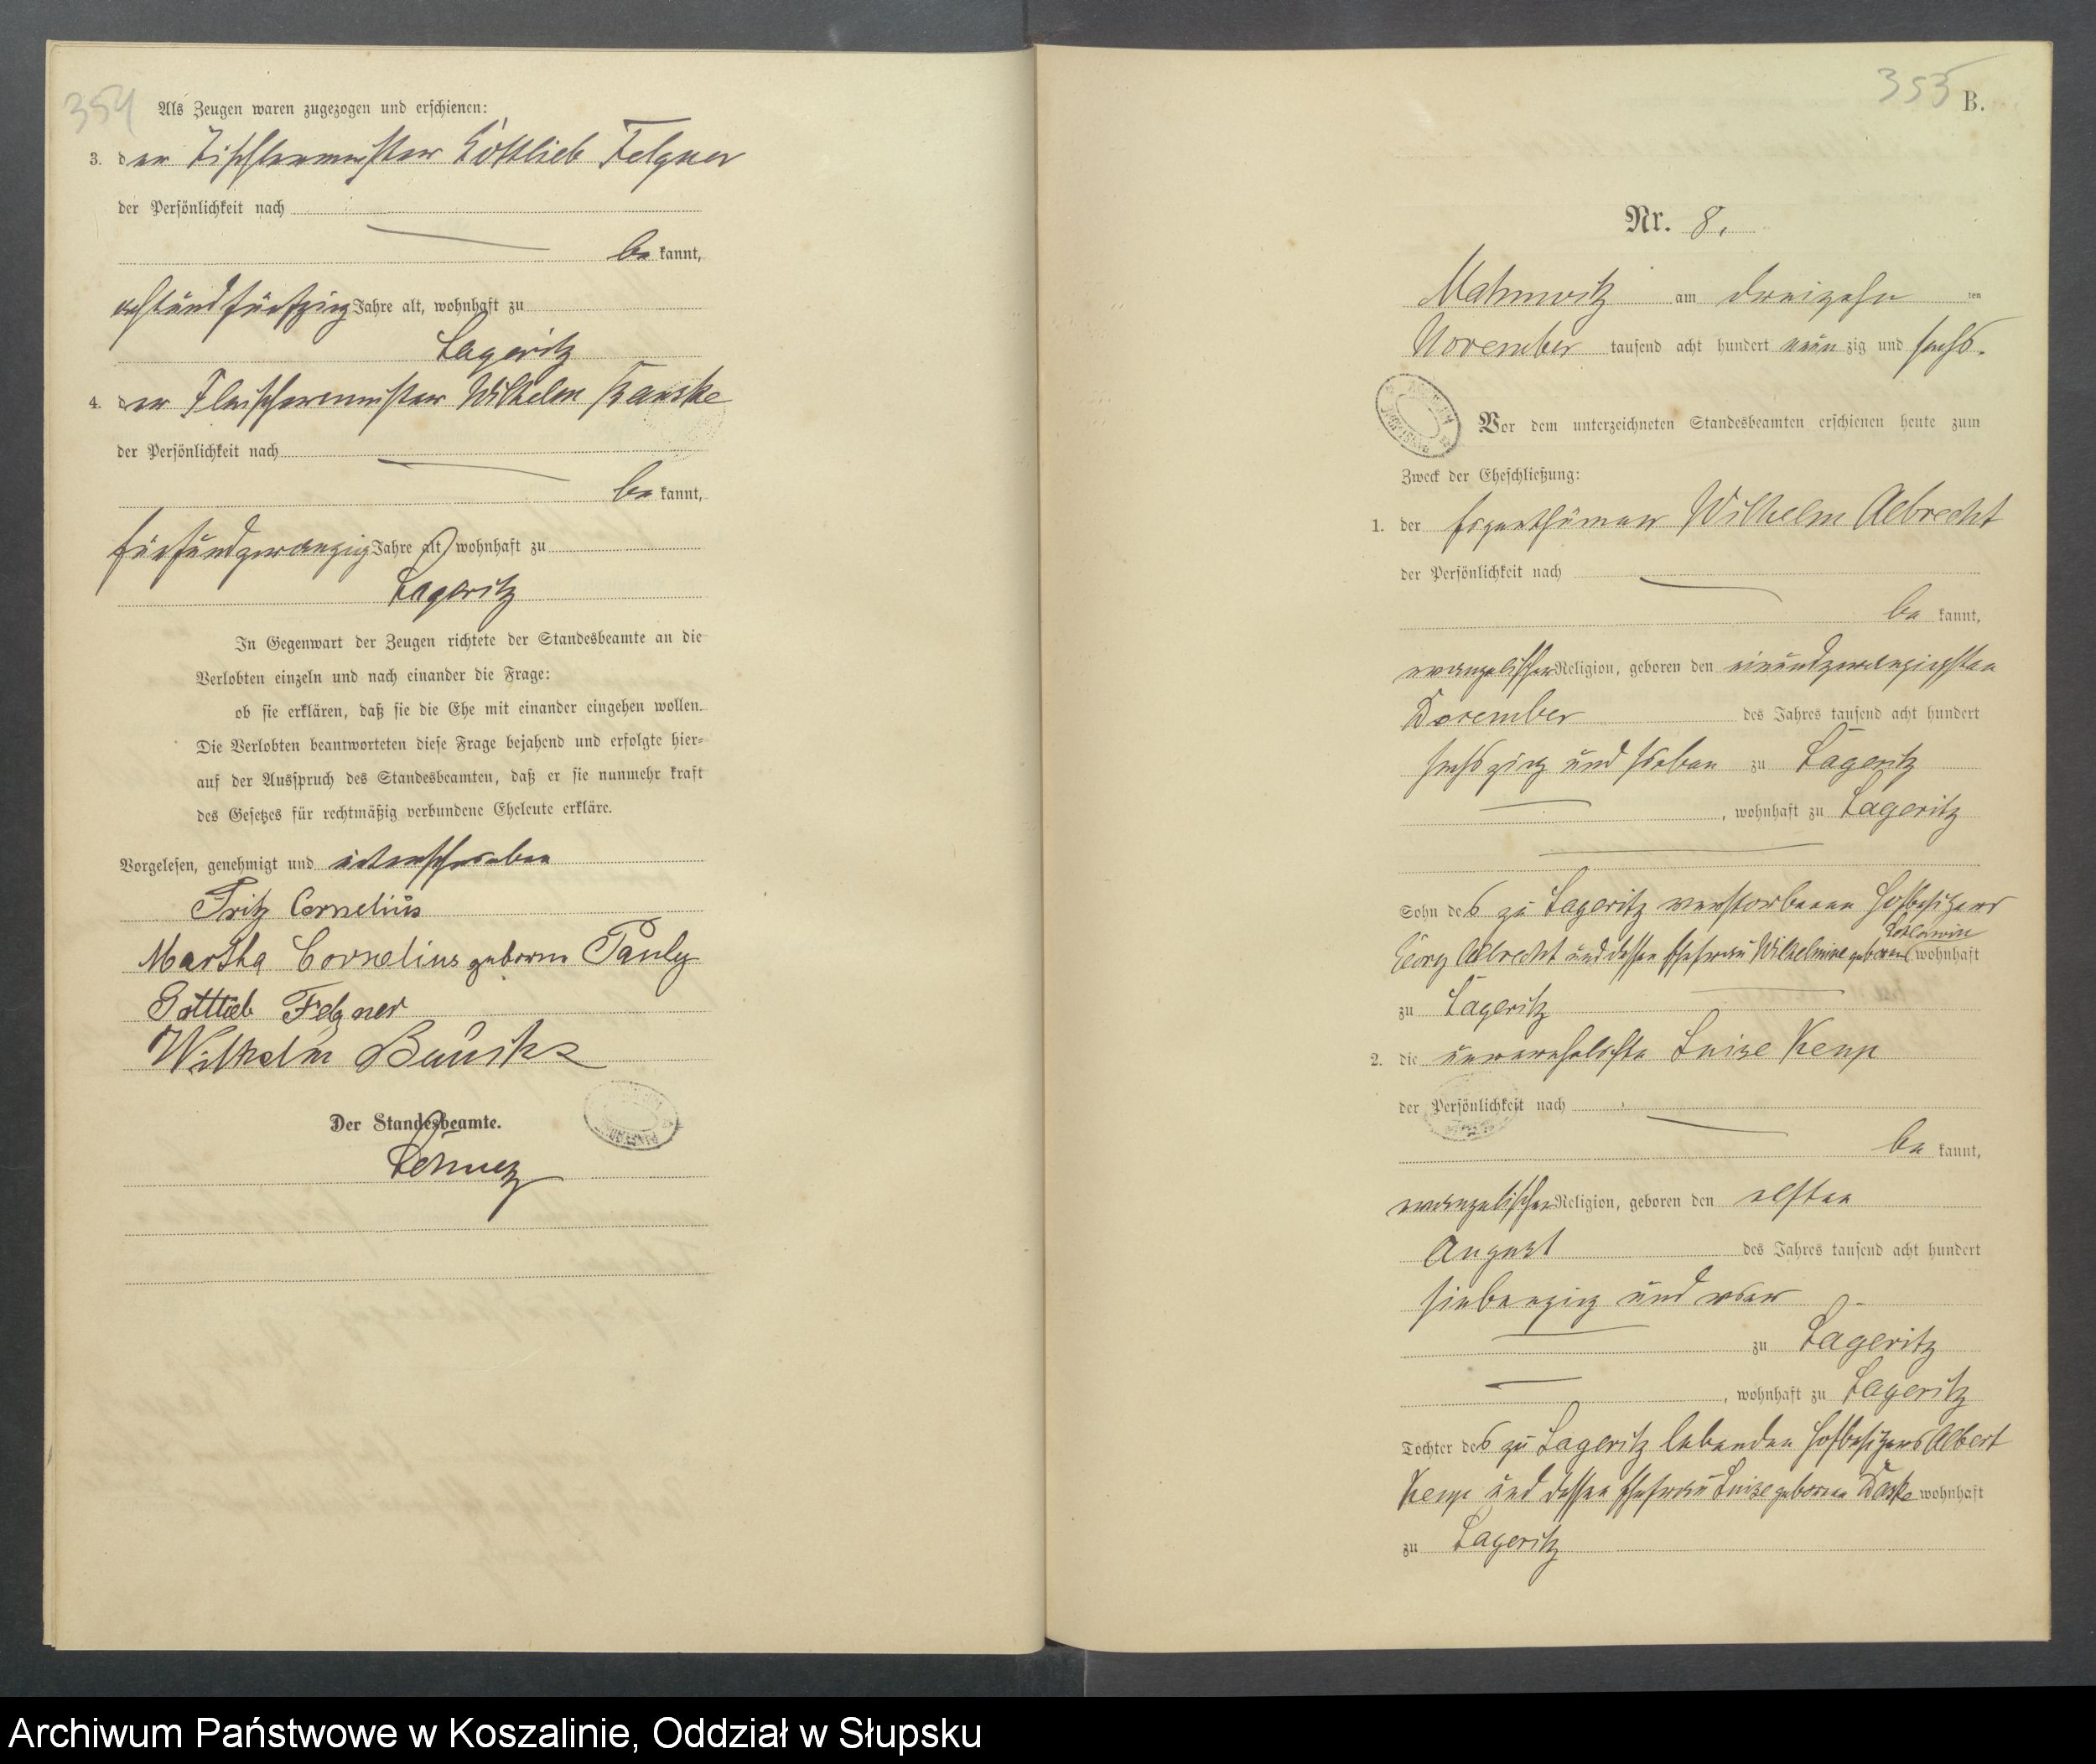 354
Als Zeugen waren zugezogen und erschienen:
3. der Tischlermeister Gottlieb Felgner
der Persönlichkeit nach
be kannt,
achtundfünfzig Jahre alt, wohnhaft zu
Lageritz
4. der Fleischermeister Wilhelm
der Persönlichkeit nach
be kannt,
fünfundzwanzig Jahre alt, wohnhaft zu
Lageritz
In Gegenwart der Zeugen richtete der Standesbeamte an die
Verlobten einzeln und nach einander die Frage:
ob sie erklären, daß sie die Ehe mit einander eingehen wollen.
Die Verlobten beantworteten diese Frage bejahend und erfolgte hier-
auf der Ausspruch des Standesbeamten, daß er sie nunmehr kraft
des Gesetzes für rechtmäßig verbundene Eheleute erkläre.
Vorgelesen, genehmigt und unterschrieben
Fritz Cornelius
Martha Cornelius geborne Pauly
Gottlieb Felgner
Wilhelm
Der Standesbeamte.
353
B.
Nr. 8.
Mahnwitz am dreizehn ten
November tausend acht hundert neun zig und sechs.
Vor dem unterzeichneten Standesbeamten erschienen heute zum
Zweck der Eheschließung:
1. der Eigenthümer Wilhelm Albrecht
der Persönlichkeit nach
be kannt,
evangelischer Religion, geboren den einundzwanzigsten
des Jahres tausend acht hundert
sechszig und sieben zu Lageritz
, wohnhaft zu Lageritz
Sohn des zu Lageritz verstorbenen Hofbesitzers
Georg Albrecht und dessen Ehefrau Wilhelmine geborene wohnhaft
zu Lageritz
2. die unverehelichte Luise Kemp
der Persönlichkeit nach
be kannt,
evangelischer Religion, geboren den elften
August des Jahres tausend acht hundert
siebenzig und vier
zu Lageritz
, wohnhaft zu Lageritz
Tochter des zu Lageritz lebenden Hofbesitzers Albert
Kemp und dessen Ehefrau Luise geborene wohnhaft
zu Lageritz
Archiwum Państwowe w Koszalinie, Oddział w Słupsku